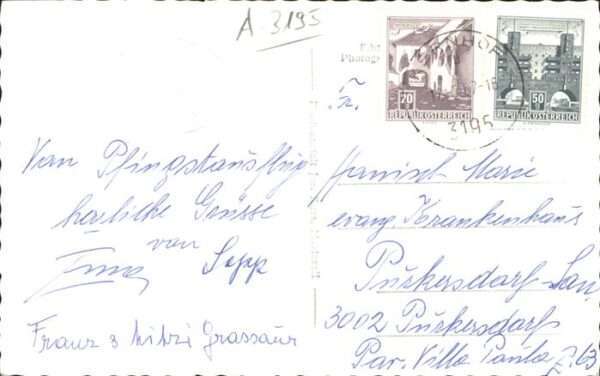 A 3195
70
REPUBLIK ÖSTERREICH
50
REPUBLIK ÖSTERREICH
3195
Vom Pfingstausflug
herzliche Grüsse
von
Sepp
Franz & Mitzi Grassaur
Marie
evang. Krankenhaus
Purkersdorf-San
3002 Purkersdorf
Par. Villa Paula Z. 63